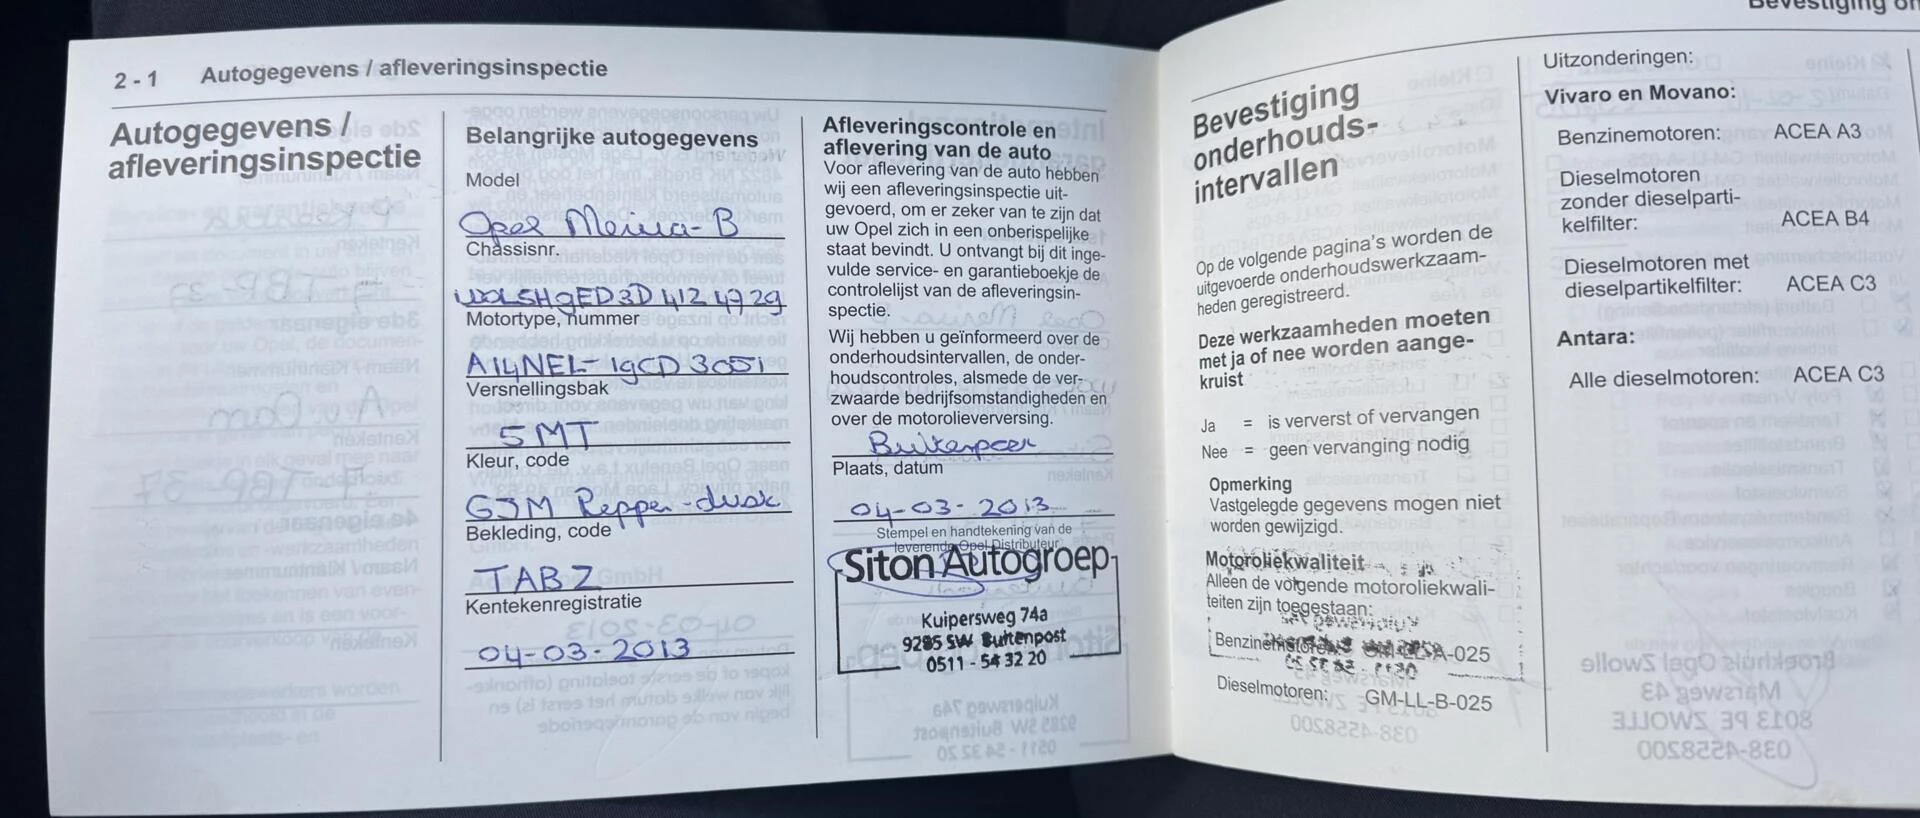 2 - 1 Autogegevens / afleveringsinspectie
Autogegevens /
afleveringsinspectie
Belangrijke autogegevens
Model
Opel Meriva-B
Chassisnr.
W0LSH9ED3D4124729
Motortype, nummer
A14NEL-19CD3051
Versnellingsbak
5MT
Kleur, code
GJM Pepper-dusk
Bekleding, code
TABZ
Kentekenregistratie
04-03-2013
Afleveringscontrole en
aflevering van de auto
Voor aflevering van de auto hebben
wij een afleveringsinspectie uit-
gevoerd, om er zeker van te zijn dat
uw Opel zich in een onberispelijke
staat bevindt. U ontvangt bij dit inge-
vulde service- en garantieboekje de
controlelijst van de afleveringsin-
spectie.
Wij hebben u geïnformeerd over de
onderhoudsintervallen, de onder-
houdscontroles, alsmede de ver-
zwaarde bedrijfsomstandigheden en
over de motorolieverversing.
Buitenpost
Plaats, datum
04-03-2013
Stempel en handtekening van de
leverende Opel Distributeur
Siton Autogroep
Kuipersweg 74a
9285 SW Buitenpost
0511 - 54 32 20
Bevestiging
onderhouds-
intervallen
Op de volgende pagina's worden de
uitgevoerde onderhoudswerkzaam-
heden geregistreerd.
Deze werkzaamheden moeten
met ja of nee worden aange-
kruist
Ja = is ververst of vervangen
Nee = geen vervanging nodig
Opmerking
Vastgelegde gegevens mogen niet
worden gewijzigd.
Motoroliekwaliteit
Alleen de volgende motoroliekwali-
teiten zijn toegestaan:
Benzinemotoren: GM-LL-A-025
Dieselmotoren: GM-LL-B-025
Uitzonderingen:
Vivaro en Movano:
Benzinemotoren: ACEA A3
Dieselmotoren
zonder dieselparti-
kelfilter: ACEA B4
Dieselmotoren met
dieselpartikelfilter: ACEA C3
Antara:
Alle dieselmotoren: ACEA C3